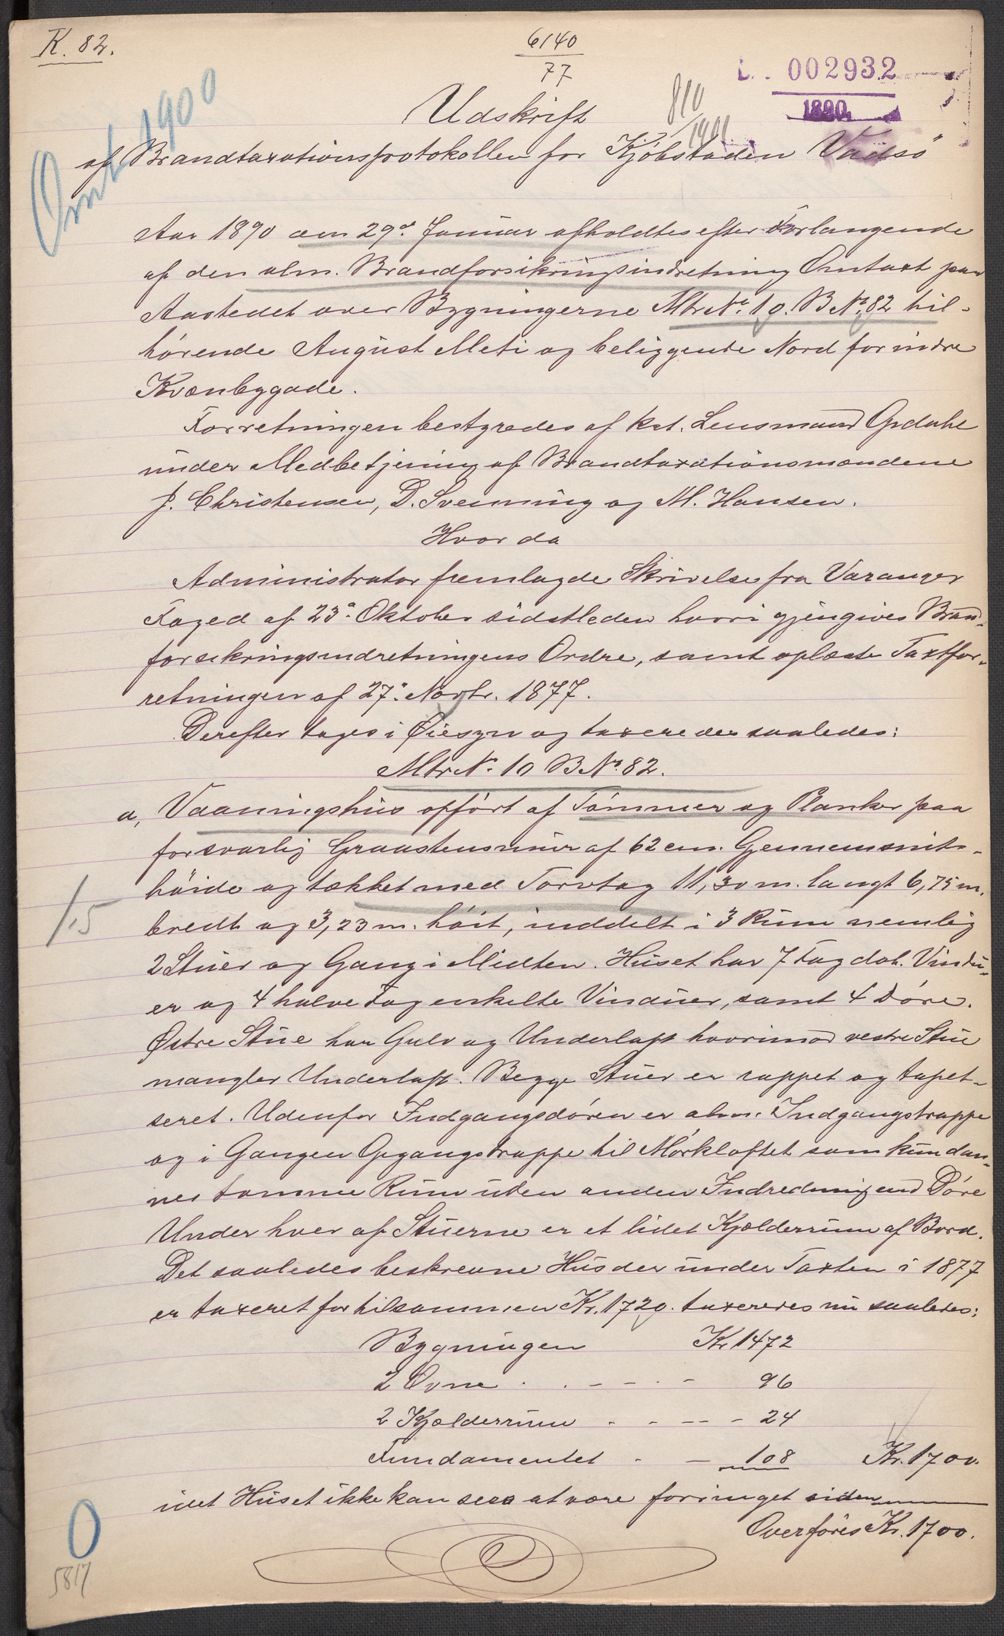 K. 82.
6140
77
L. 002932
1890
810
1901
Omt 1900
Udskrift
af Brandtaxationsprotokollen for Kjøbstaden Vadsø
Aar 1890 den 29de Januar afholdtes efter Forlangende
af den alm. Brandforsikringsindretning Omtaxt paa
Aastedet over Bygningerne Mtr No. 10. B No. 82 til-
hørende August Meti og beliggende Nord for indre
Kvænbygade.
Forretningen bestyredes af kst. Lensmand Opdahl
under Medbetjening af Brandtaxationsmændene
J. Christensen, D. Svenning og M. Hansen.
Hvor da
Administrator fremlagde Skrivelse fra Varanger
Foged af 23de Oktober sidstleden hvori gjengives Brand-
forsikringsindretningens Ordre, samt oplæste Taxtfor-
retningen af 27de Novbr. 1877.
Derefter toges i Øiesyn og taxeredes saaledes:
Mtr No. 10 B No. 82.
a, Vaaningshus opført af Tømmer og Planker paa
forsvarlig Graastensmur af 62 cm. Gennemsnits-
høide og tækket med Torvtag 11,30 m. langt 6,75 m.
1.5
bredt og 3,23 m. høit, inddelt i 3 Rum nemlig
2 Stuer og Gang i Midten. Huset har 7 Fag dob. Vindu-
er og 4 halve Fag enkelte Vinduer, samt 4 Døre.
Østre Stue har Gulv og Underloft hvorimod vestre Stue
mangler Underloft. Begge Stuer er rappet og tapet-
seret. Udenfor Indgangsdøren er alm. Indgangstrappe
og i Gangen Opgangstrappe til Mørkloftet som kun dan-
ner tomme Rum uden anden Indredning end Døre
Under hver af Stuerne er et lidet Kjælderrum af Bord.
Det saaledes beskrevne Hus der under Taxten i 1877
er taxeret for tilsammen Kr. 1720. taxeredes nu saaledes:
Bygningen Kr 1472
2 Ovne . . - - - - 96
2 Kjælderrum - - - - - 24
Fundamentet - - 108 Kr. 1700.
idet Huset ikke kan sees at være foringet siden
Overføres Kr. 1700.
0
5817